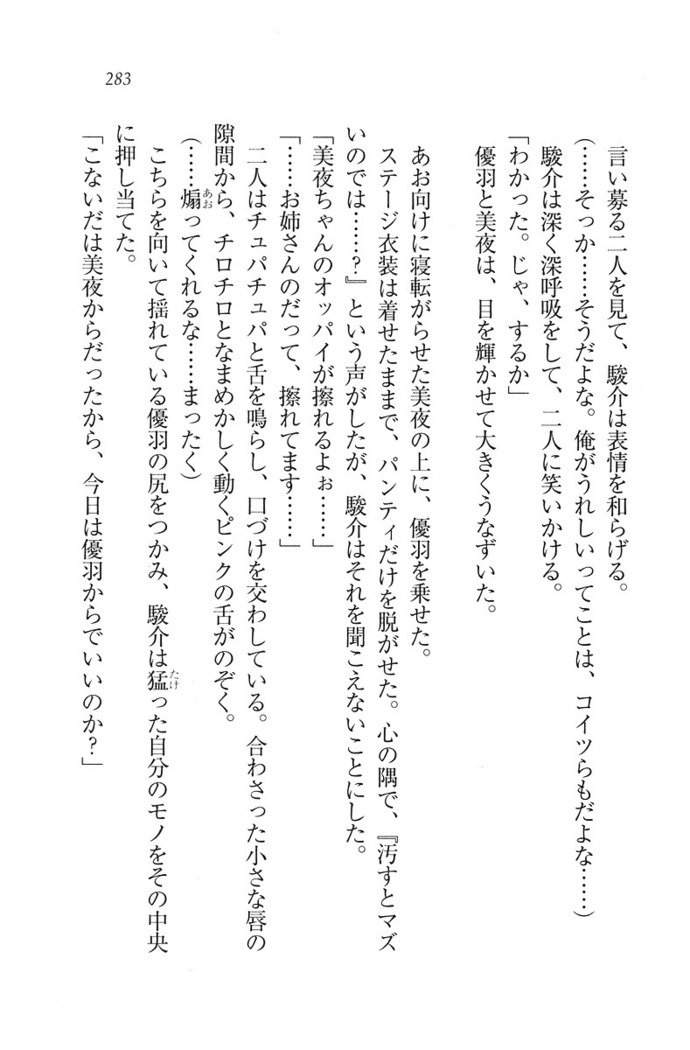 283
言い募る二人を見て、駿介は表情を和らげる。
（……そっか……そうだよな。俺がうれしいってことは、コイツらもだよな……）
駿介は深く深呼吸をして、二人に笑いかける。
「わかった。じゃ、するか」
優羽と美夜は、目を輝かせて大きくうなずいた。
あお向けに寝転がらせた美夜の上に、優羽を乗せた。
ステージ衣装は着せたままで、パンティだけを脱がせた。心の隅で、『汚すとマズ
いのでは……？』という声がしたが、駿介はそれを聞こえないことにした。
「美夜ちゃんのオッパイが擦れるよぉ……」
「……お姉さんのだって、擦れてます……」
二人はチュパチュパと舌を鳴らし、口づけを交わしている。合わさった小さな唇の
隙間から、チロチロとなまめかしく動くピンクの舌がのぞく。
（……煽あおってくれるな……まったく）
こちらを向いて揺れている優羽の尻をつかみ、駿介は猛たけった自分のモノをその中央
に押し当てた。
「こないだは美夜からだったから、今日は優羽からでいいのか？」